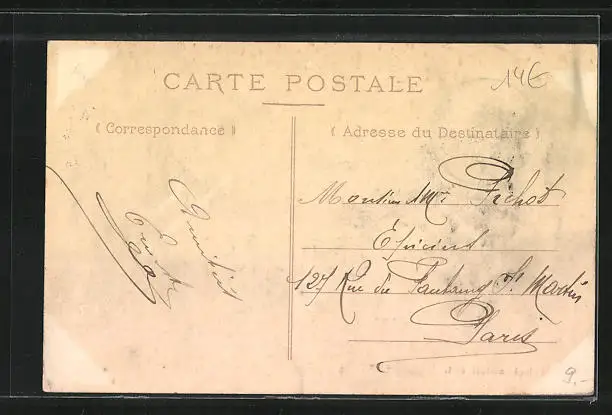 14€
CARTE POSTALE
( Correspondance )
( Adresse du Destinataire )
Amitiés
Monsieur Mme Pichot
Epiciers
127 Rue du Faubourg St Martin
Paris
9.-